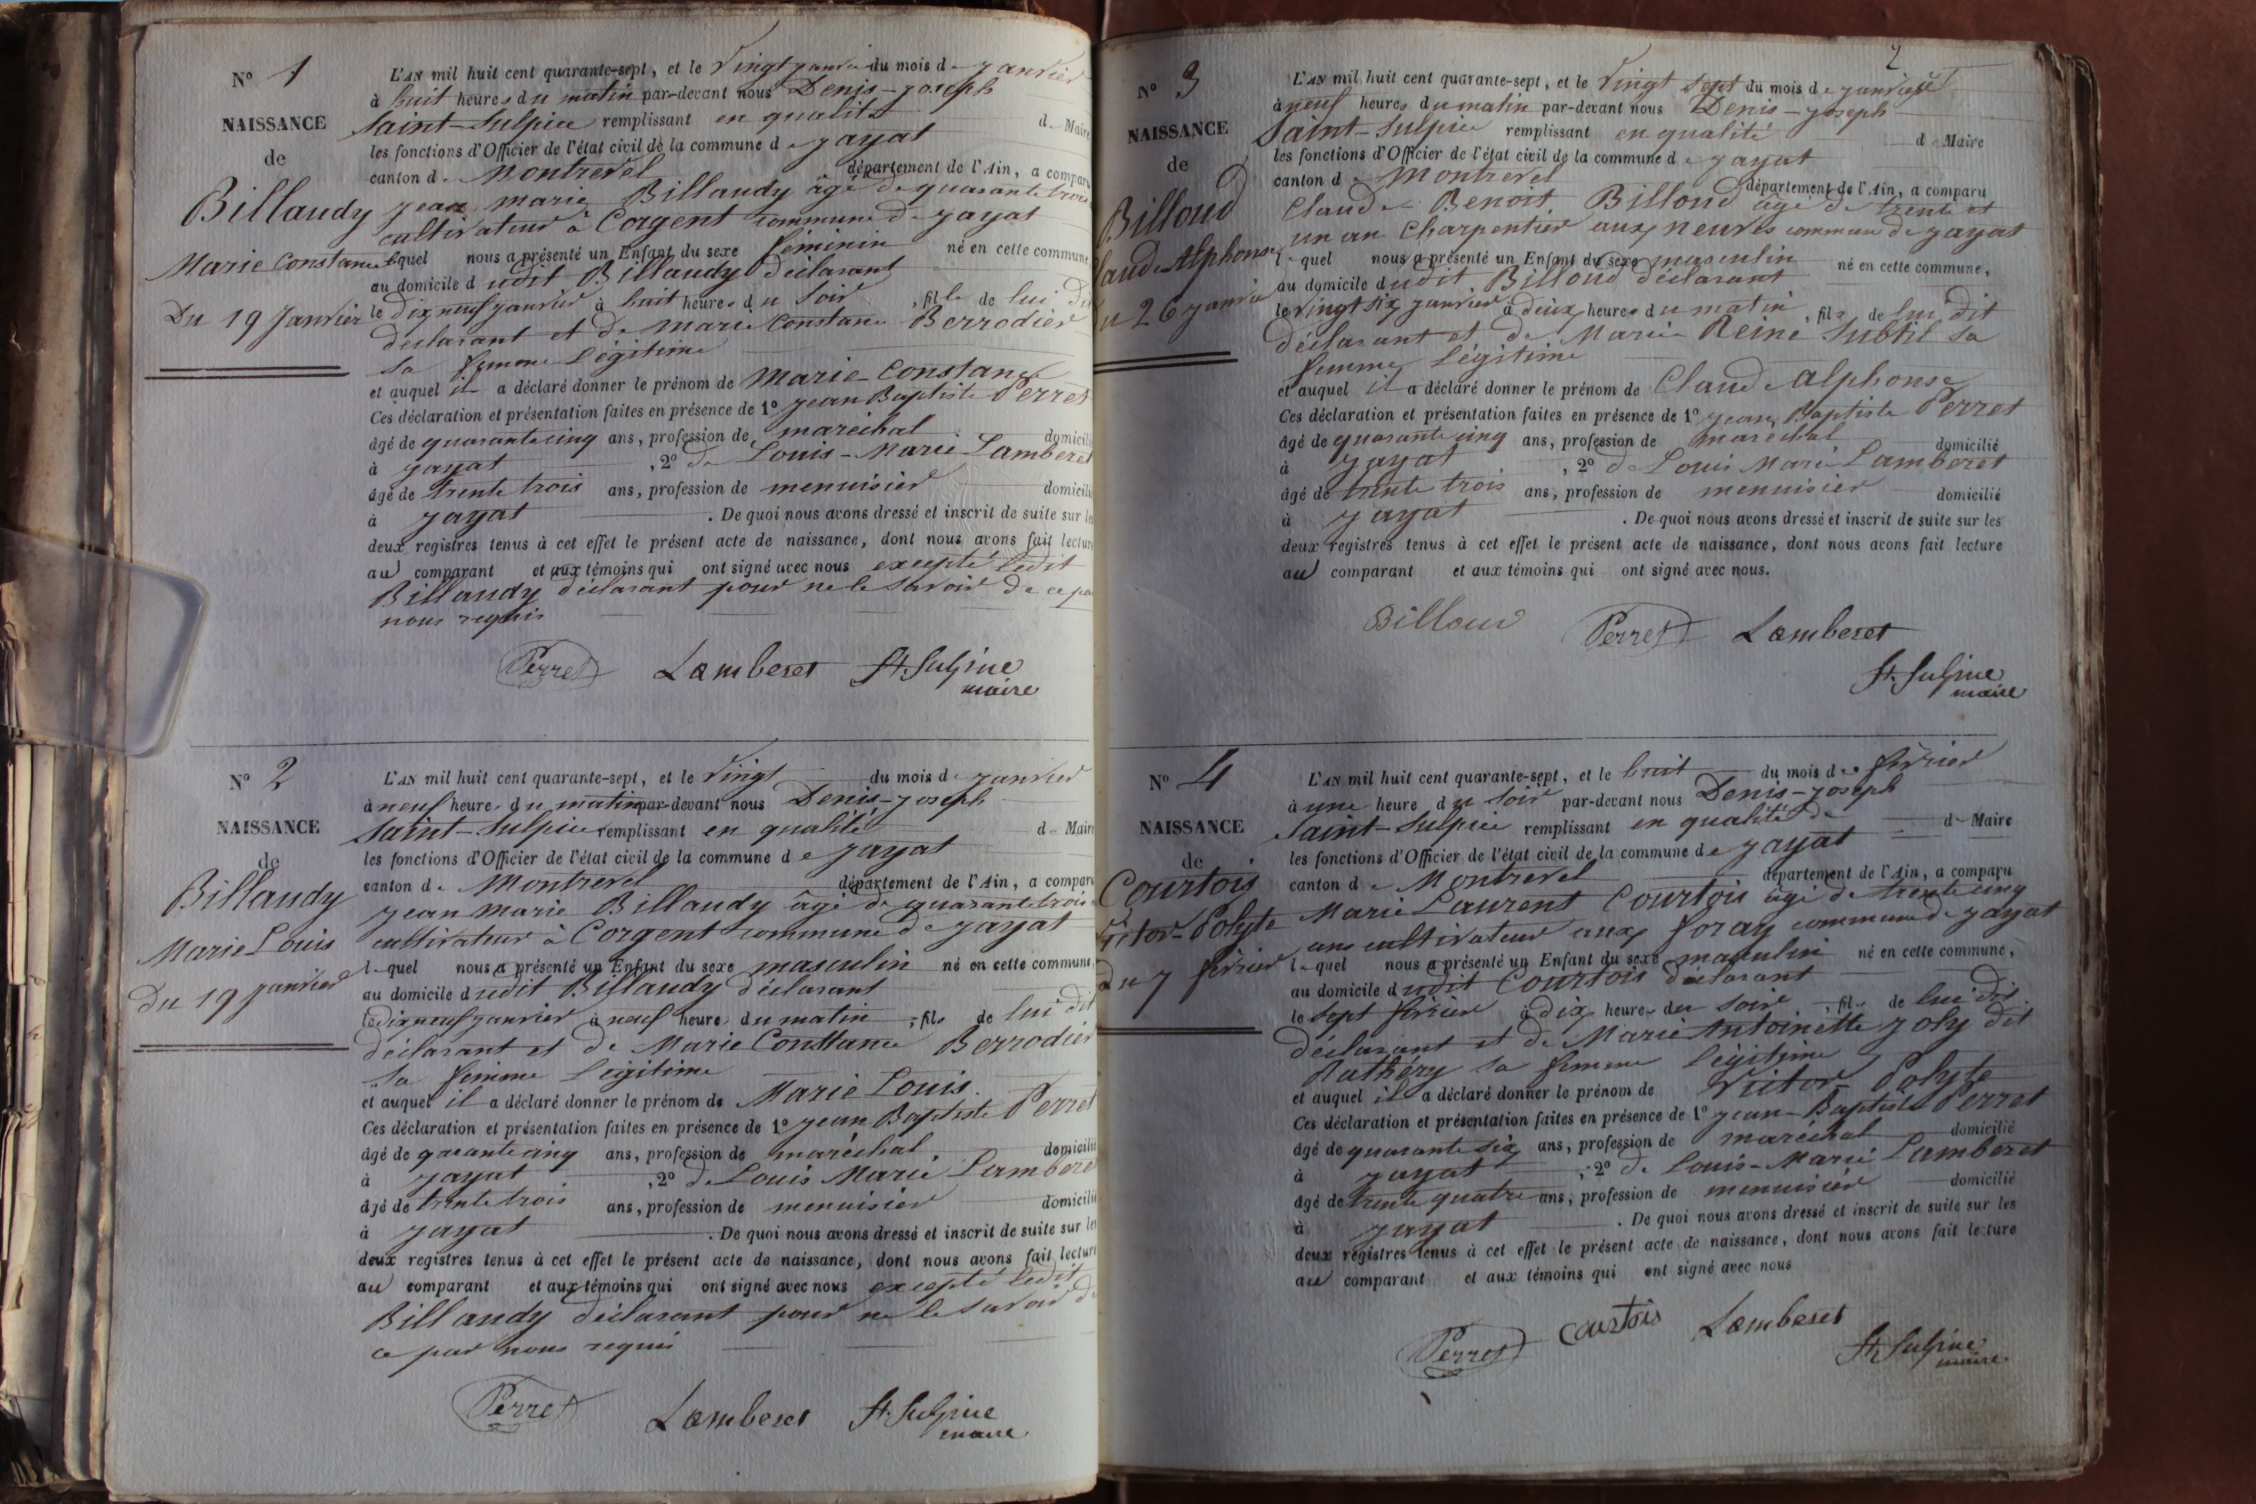 N° 1
NAISSANCE
de
Billaudy
Marie Constance
Du 19 Janvier
L'AN mil huit cent quarante-sept, et le Vingt janvier du mois de janvier
à huit heures du matin par-devant nous Denis-joseph
Saint-Sulpice remplissant en qualité de Maire
les fonctions d'Officier de l'état civil de la commune de jayat
canton de Montrevel département de l'Ain, a comparu
jean marie Billaudy âgé de quarante trois
cultivateur à Corgent commune de jayat
lequel nous a présenté un Enfant du sexe féminin né en cette commune
au domicile dudit Billaudy déclarant
le dix neuf janvier à huit heures du soir, fille de lui dit
déclarant et de marie constance Berrodier
sa femme légitime
et auquel il a déclaré donner le prénom de Marie-Constance
Ces déclaration et présentation faites en présence de 1° jean Baptiste Perret
âgé de quarante cinq ans, profession de maréchal domicilié
à jayat, 2° de Louis-Marie Lamberet
âgé de trente trois ans, profession de menuisier domicilié
à jayat. De quoi nous avons dressé et inscrit de suite sur les
deux registres tenus à cet effet le présent acte de naissance, dont nous avons fait lecture
au comparant et aux témoins qui ont signé avec nous excepté ledit
Billaudy déclarant pour ne le savoir de ce par
nous requis
Perret Lamberet St. Sulpice
maire
N° 2
NAISSANCE
de
Billaudy
Marie Louis
Du 19 janvier
L'AN mil huit cent quarante-sept, et le Vingt du mois de janvier
à neuf heures du matin par-devant nous Denis-joseph
Saint-Sulpice remplissant en qualité de Maire
les fonctions d'Officier de l'état civil de la commune de jayat
canton de Montrevel département de l'Ain, a comparu
jean marie Billaudy âgé de quarante trois
cultivateur à Corgent commune de jayat
lequel nous a présenté un Enfant du sexe masculin né en cette commune
au domicile dudit Billaudy déclarant
le dix neuf janvier à neuf heures du matin, fils de lui dit
déclarant et de Marie Constance Berrodier
sa femme légitime
et auquel il a déclaré donner le prénom de Marie Louis.
Ces déclaration et présentation faites en présence de 1° jean Baptiste Perret
âgé de qarante cinq ans, profession de maréchal domicilié
à jayat, 2° de Louis Marie Lamberet
âgé de trente trois ans, profession de menuisier domicilié
à jayat. De quoi nous avons dressé et inscrit de suite sur les
deux registres tenus à cet effet le présent acte de naissance, dont nous avons fait lecture
au comparant et aux témoins qui ont signé avec nous excepté ledit
Billaudy déclarant pour ne le savoir de
ce par nous requis
Perret Lamberet St. Sulpice
maire
2
N° 3
NAISSANCE
de
Billoud
Claude Alphonse
Du 26 janvier
L'AN mil huit cent quarante-sept, et le Vingt sept du mois de janvier
à neuf heures du matin par-devant nous Denis-joseph
Saint-Sulpice remplissant en qualité de Maire
les fonctions d'Officier de l'état civil de la commune de jayat
canton de Montrevel département de l'Ain, a comparu
Claude Benoit Billoud âgé de trente et
un an Charpentier aux neuves commune de jayat
lequel nous a présenté un Enfant du sexe masculin né en cette commune,
au domicile dudit Billoud déclarant
le vingt six janvier à deux heures du matin, fils de lui dit
déclarant et de Marie Reine Subtil sa
femme légitime
et auquel il a déclaré donner le prénom de Claude Alphonse
Ces déclaration et présentation faites en présence de 1° jean Baptiste Perret
âgé de quarante cinq ans, profession de maréchal domicilié
à jayat, 2° de Louis Marie Lamberet
âgé de trente trois ans, profession de menuisier domicilié
à jayat. De quoi nous avons dressé et inscrit de suite sur les
deux registres tenus à cet effet le présent acte de naissance, dont nous avons fait lecture
au comparant et aux témoins qui ont signé avec nous.
Billoud Perret Lamberet
St. Sulpice
maire
N° 4
NAISSANCE
de
Courtois
Victor-Polyte
Du 7 février
L'AN mil huit cent quarante-sept, et le huit du mois de février
à une heure du soir par-devant nous Denis-joseph
Saint-Sulpice remplissant en qualité de de Maire
les fonctions d'Officier de l'état civil de la commune de jayat
canton de Montrevel département de l'Ain, a comparu
Marie Laurent Courtois âgé de trente cinq
ans cultivateur aux foray commune de jayat
lequel nous a présenté un Enfant du sexe masculin né en cette commune,
au domicile dudit Courtois déclarant
le sept février à dix heures du soir, fils de lui dit
déclarant et de Marie Antoinette joly dit
Rathéry sa femme légitime
et auquel il a déclaré donner le prénom de Victor-Polyte
Ces déclaration et présentation faites en présence de 1° jean-Baptiste Perret
âgé de quarante six ans, profession de maréchal domicilié
à jayat, 2° de Louis-Marie Lamberet
âgé de trente quatre ans, profession de menuisier domicilié
à jayat. De quoi nous avons dressé et inscrit de suite sur les
deux registres tenus à cet effet le présent acte de naissance, dont nous avons fait lecture
au comparant et aux témoins qui ont signé avec nous
Perret Courtois Lamberet
St. Sulpice
maire